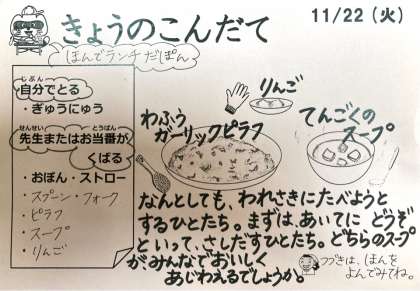 きょうのこんだて
11/22（火）
ほんでランチだぽん
自分でとる
じぶん
・ぎゅうにゅう
先生またはお当番が
せんせい とうばん
くばる
・おぼん・ストロー
・スプーン・フォーク
・ピラフ
・スープ
・りんご
わふう
ガーリックピラフ
りんご
てんごくの
スープ
なんとしても、われさきにたべようと
するひとたち。まずは、あいてに どうぞ
といって、さしだすひとたち。どちらのスープ
がみんなでおいしく
あじわえるでしょうか。
つづきは、ほんを
よんでみてね。